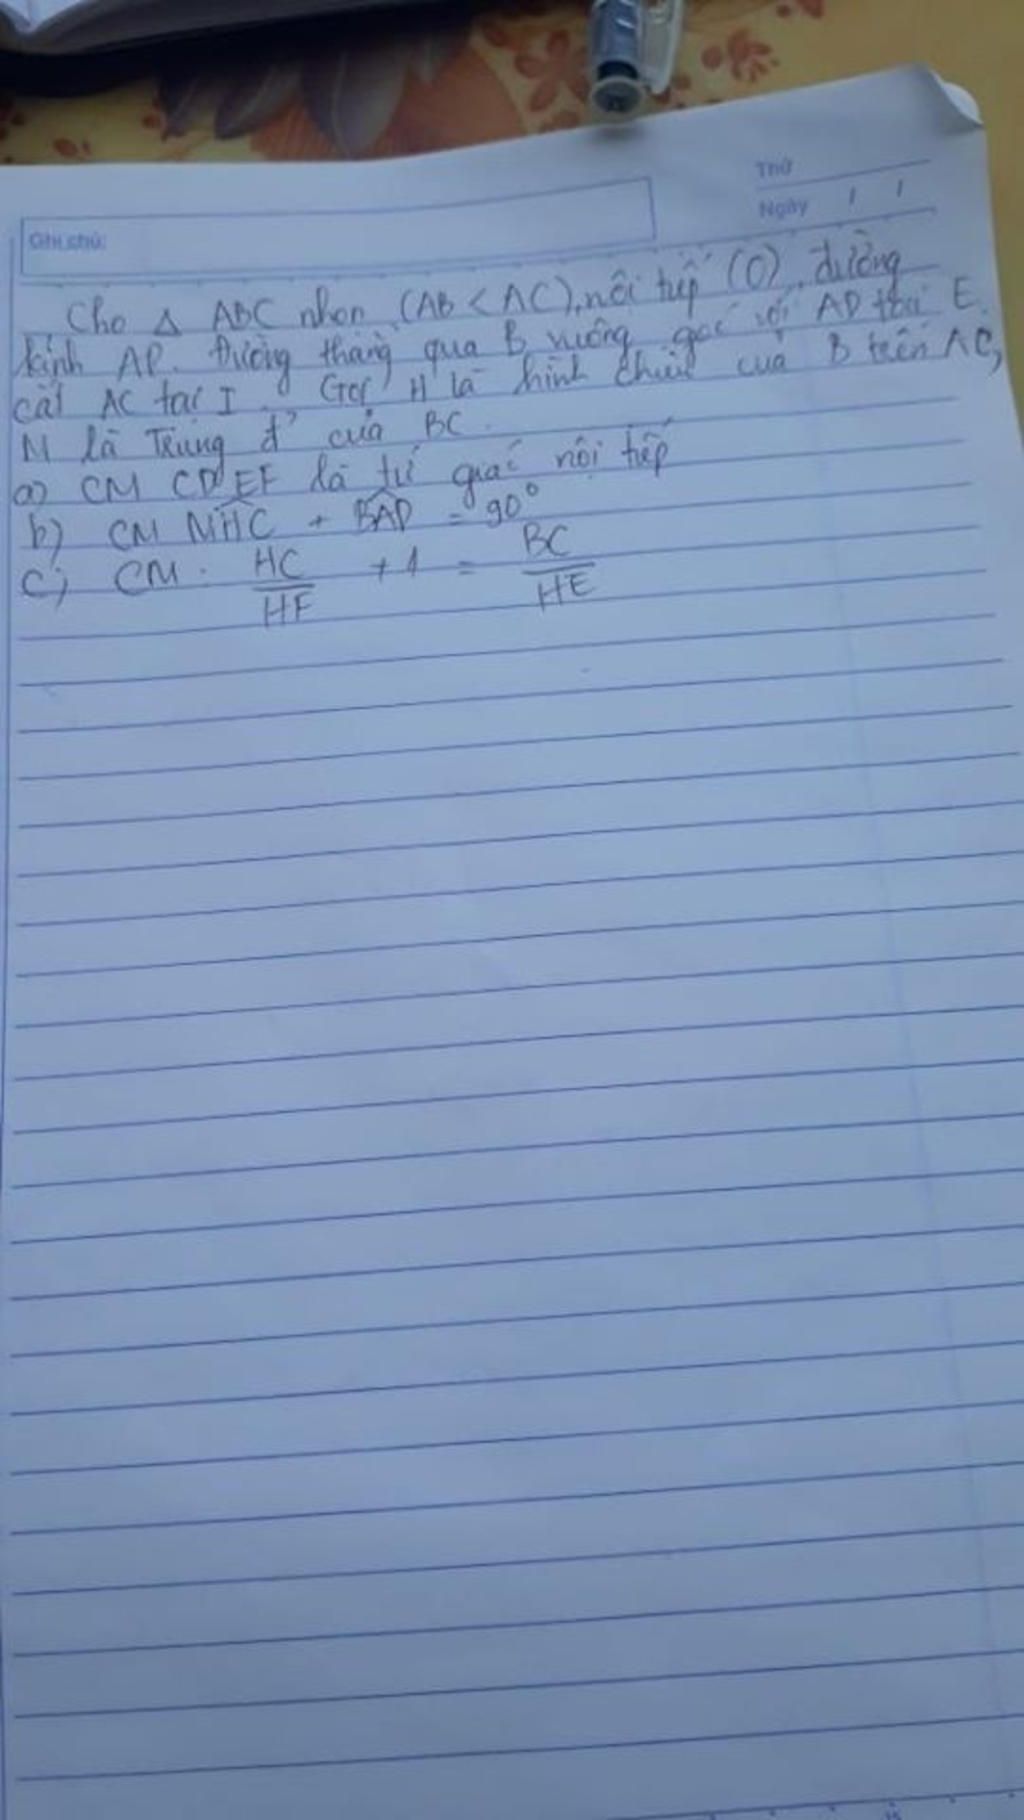 Thứ
Ngày / /
Ghi chú:
Cho Δ ABC nhọn (AB < AC), nội tiếp (O), đường
kính AD. Đường thẳng qua B vuông góc với AD tại E
cắt AC tại I. Gọi H là hình chiếu của B trên AC,
M là Trung đ' của BC.
a) CM CDEF là tứ giác nội tiếp
b) CM MHC + BAD = 90°
c) CM: HC/HF + 1 = BC/HE